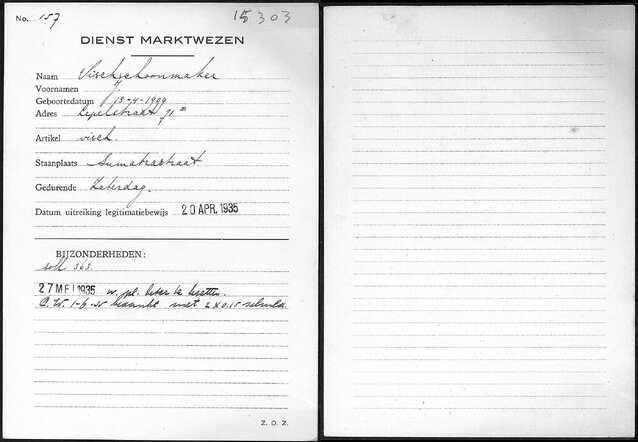 No. 157 15303
DIENST MARKTWEZEN
Naam Vischschoonmaker
Voornamen J.
Geboortedatum 13-4-1909
Adres Lepelstraat 71
Artikel visch.
Staanplaats Sumatrastraat
Gedurende Zaterdag.
Datum uitreiking legitimatiebewijs 20 APR. 1935
BIJZONDERHEDEN:
soll 363
27 MEI 1935 w. pl. beter te bezetten.
C.W. 1-6-35 bedankt met 2 x 0.15 schuld.
Z. O. Z.